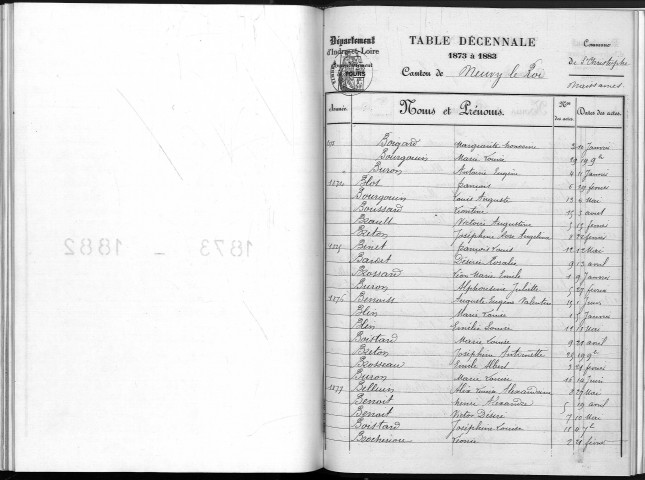 1873 - 1882
Département
d'Indre-et-Loire
TOURS
TABLE DÉCENNALE
1873 à 1883
Canton de Neuvy le Roi
Commune
De St Christophe
Naissances
Année
Noms et Prénoms.
Nos des actes.
Dates des actes.
Bougard Marguerite 2 Janvier
Bourgouin Marie Louise 19 9bre
Buron Antoine Eugène 4 11 Janvier
1874 Blos François 6 février
Bourgouin Louis Auguste 13 4 Mai
Boussard Léontine 15 3 avril
Beault Victoire Augustine 5 15 février
Breton Joséphine Rose Angelina 8 février
1875 Binet François Louis 12 Mai
Basset Désirée Rosalie 9 13 avril
Brossard Léon Marie Emile 1 9 Janvier
Buron Alphonsine Juliette 5 27 février
1876 Benoist Auguste Eugène Valentin
Blin Marie Louise 1 5 Janvier
Blin Emélie Louise 11 Mai
Boistard Marie Louise 9 21 avril
Breton Joséphine Antoinette 20 19 9bre
Brosseau Emile Albert 3 21 février
Buron Marie Louise 16 14 Juin
1877 Belleun Alix Louise Alexandrine 8 27 Mai
Benoit Henri Alexandre 5 19 avril
Benoit Victor Désiré 7 10 Mai
Boistard Joséphine Louise 11 9 7bre
Léonie 2 21 février